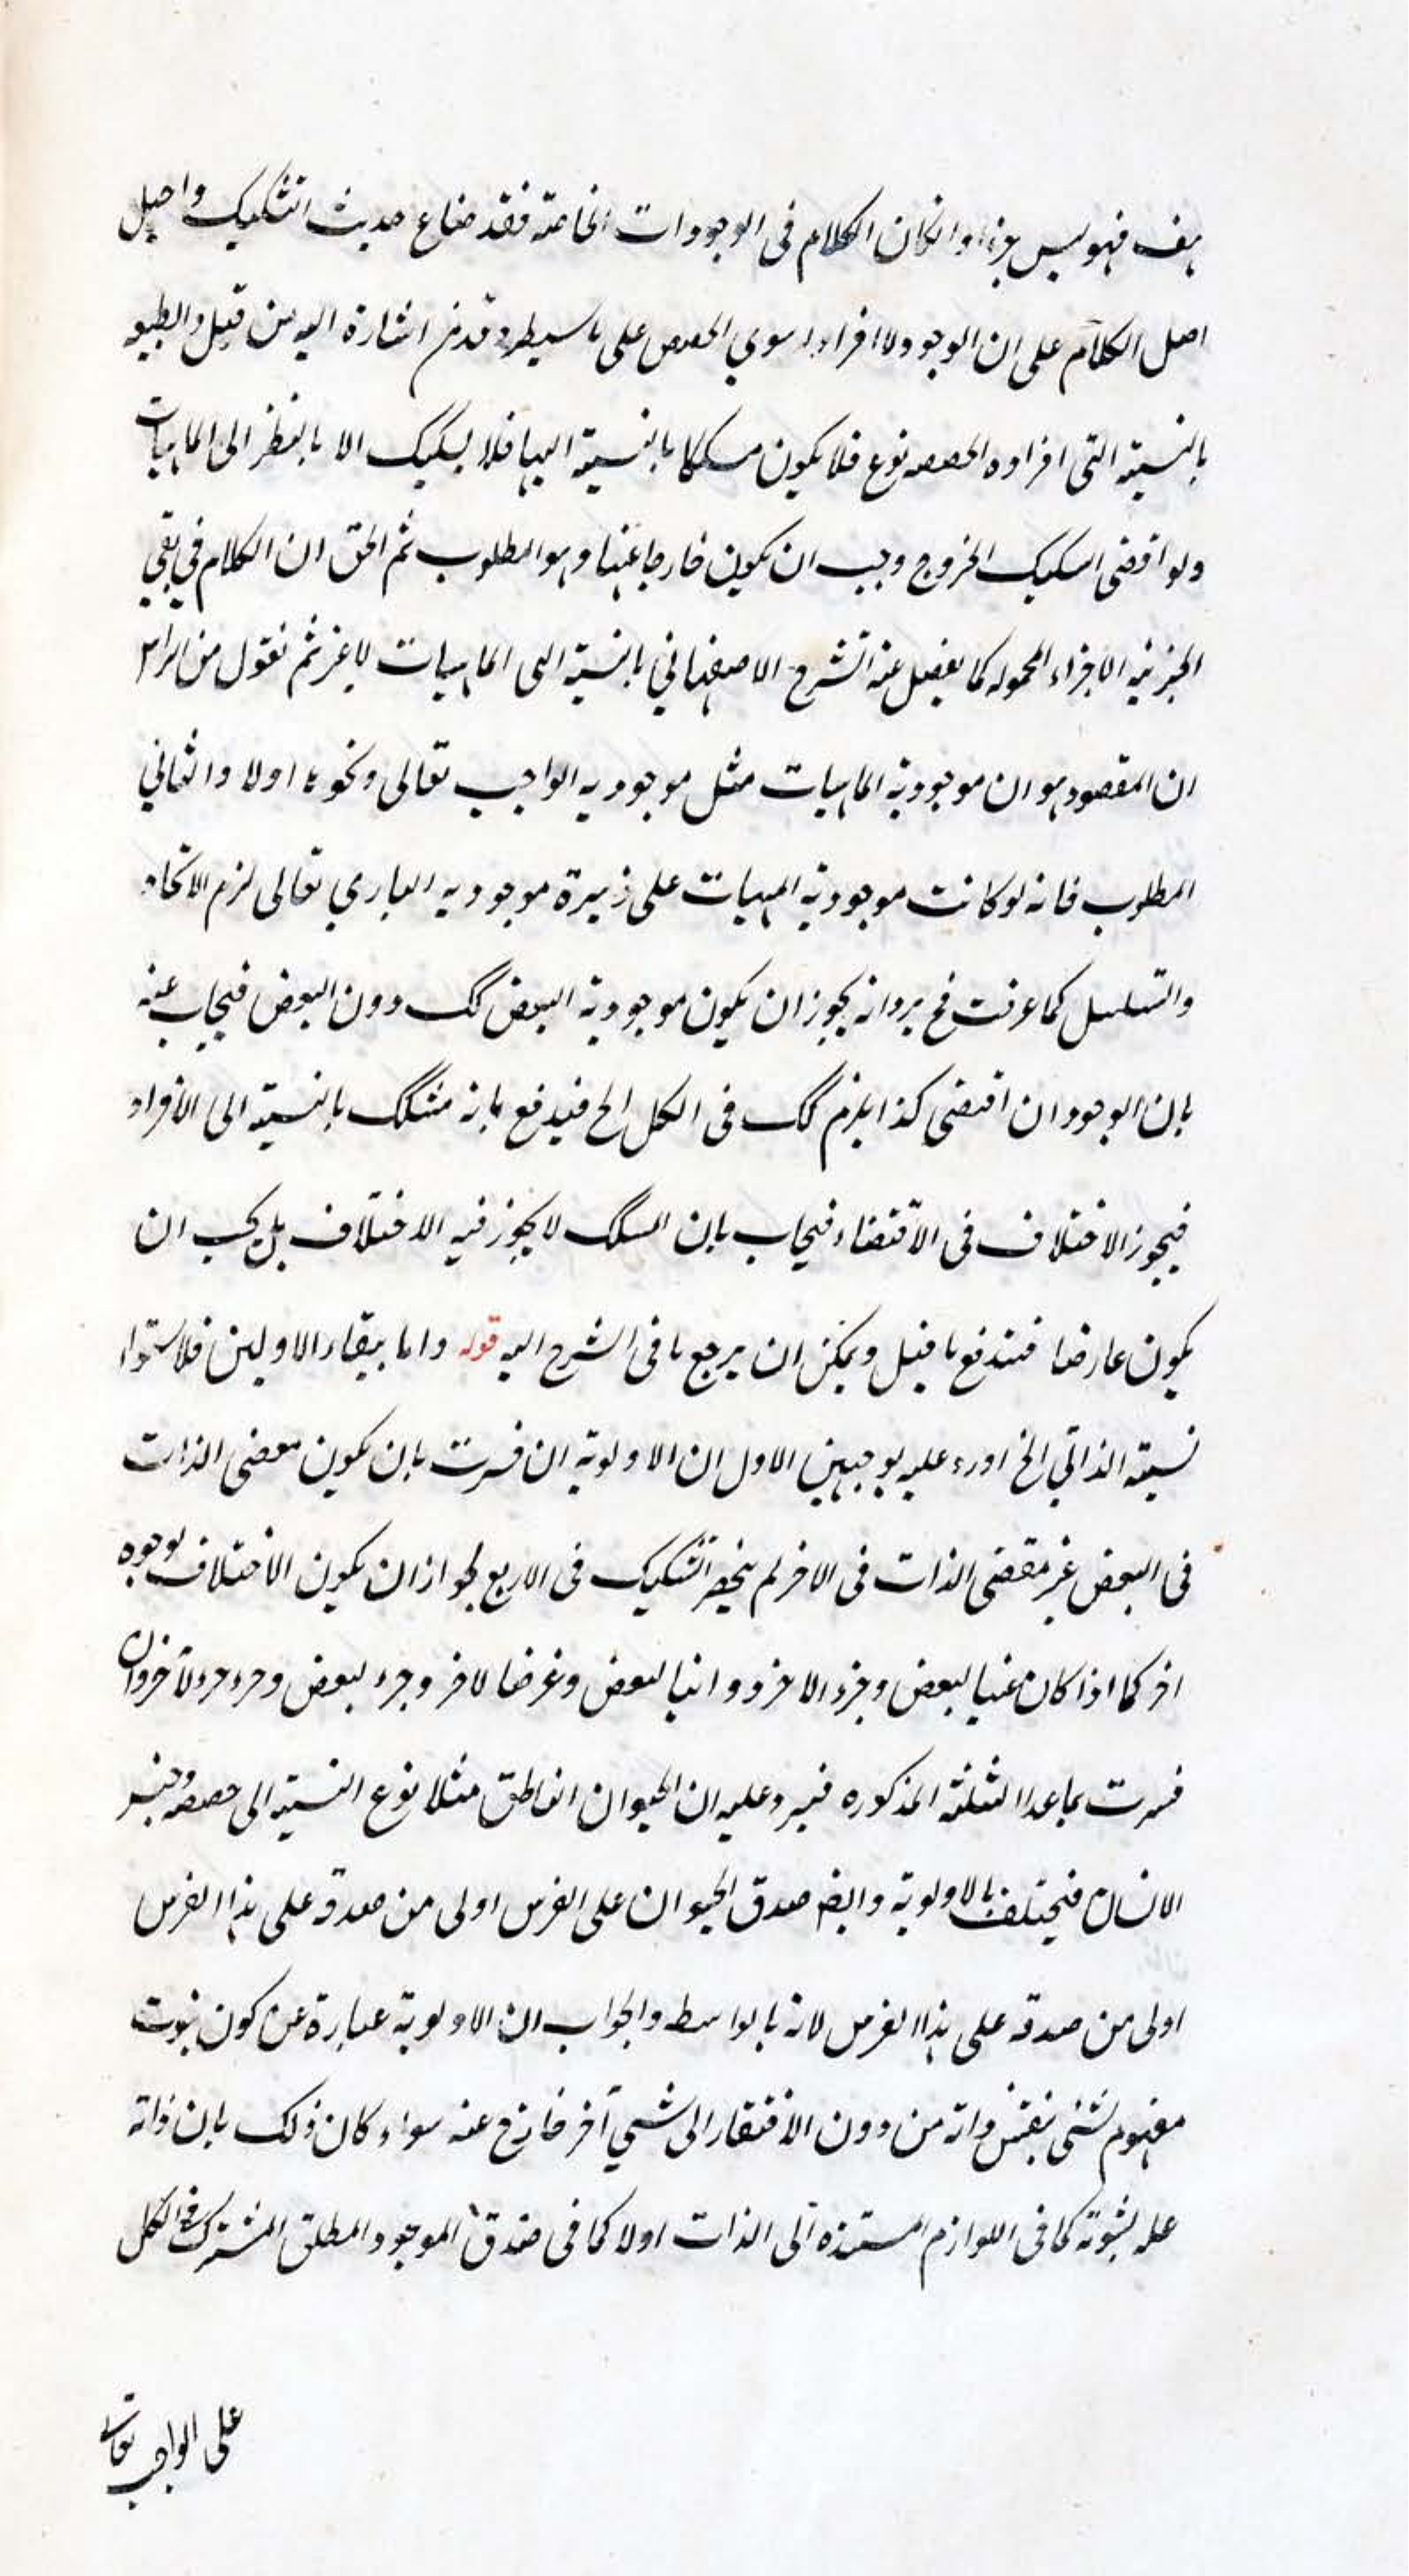 هف فهو ليس بجزء وانكان الكلام فى الوجودات الخاصة فقد ضاع حديث التشكيك واصل
اصل الكلام على ان الوجود ولا افراد سوي الحصص على اشارة اليه من قبل والطبيعه
بالنسبة التى افراده الحصصه نوع فلا يكون مسككا بالنسبة اليها فلا بسكيك الا بالنظر الى الماهيات
ولو اقتضى السكيك الخروج وجب ان يكون خارجا عنها وهو المطلوب ثم الحق ان الكلام في نفي
الجزئيه الاجزاء المحموله كما يفصل عنه الشرح الاصفهاني بالنسبة الى الماهيات لا غير ثم نقول من الراس
ان المقصود هو ان موجودية الماهيات مثل موجوديه الواجب تعالى ونحوها اولا والثاني
المطلوب فانه لوكانت موجودية المهيات على موجوديه الباري تعالى لزم الاتحاد
والتسلسل كما عرفت فح يرد انه يجوز ان يكون موجودية البعض كك دون البعض فيجاب عنه
بان الوجود ان اقتضى كذا يلزم كك فى الكل الخ فيدفع بانه مشكك بالنسبة الى الافراد
فيجوز الاختلاف فى الاقتضاء فيجاب بان المسكك لا يجوز فيه الاختلاف بل يجب ان
يكون عارضا فيندفع ما قيل ويمكن ان يرجع ما فى الشرح اليه قوله واما ببقاء الاولين فلاستواء
نسبة الذاتي الخ اورد عليه بوجهين الاول ان الاولوية ان فسرت بان يكون مقتضى الذات
فى البعض غير مقتضى الذات فى الاخر لم ينحصر التشكيك فى الاربع لجواز ان يكون الاختلاف لوجوه
اخر كما اذا كان عينا لبعض وجزء الاخر وذاتيا لبعض وعرضا لاخر وجزء لبعض وجزء جزء لاخر وان
فسرت بماعدا الثلثة المذكوره فيرد عليه ان الحيوان الناطق مثلا نوع النسبة الى حصصه وجنس
الانسان فيختلف بالاولوية وايضا صدق الحيوان على الفرس اولى من صدقه على هذا الفرس
اولى من صدقه على هذا الفرس لانه بالواسطه والجواب ان الاولوية عبارة عن كون ثبوت
مفهوم لشئى بنفس ذاته من دون الافتقار الى شيئ آخر خارج عنه سواء كان ذلك بان ذاته
عله لثبوته كما فى اللوازم المستنده الى الذات اولا كما فى صدق الموجود المطلق المشترك فى الكل
على الواجب تعالى